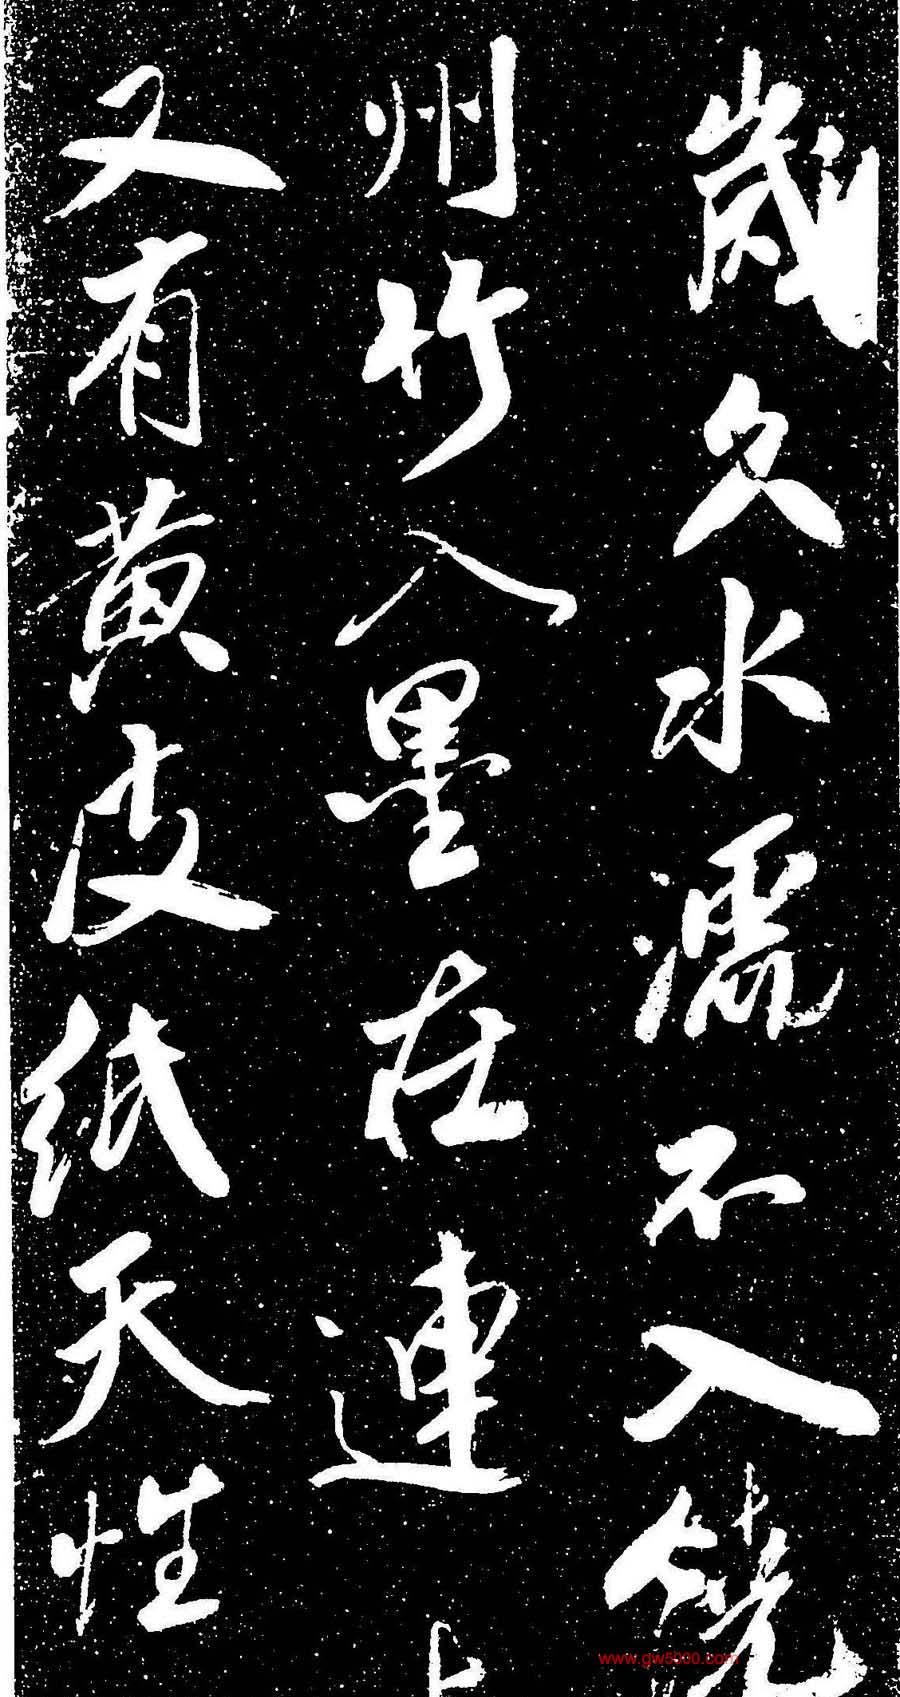 歲久水濡不入饒
州竹入墨在連上
又有黄皮紙天性
www.gw5000.com